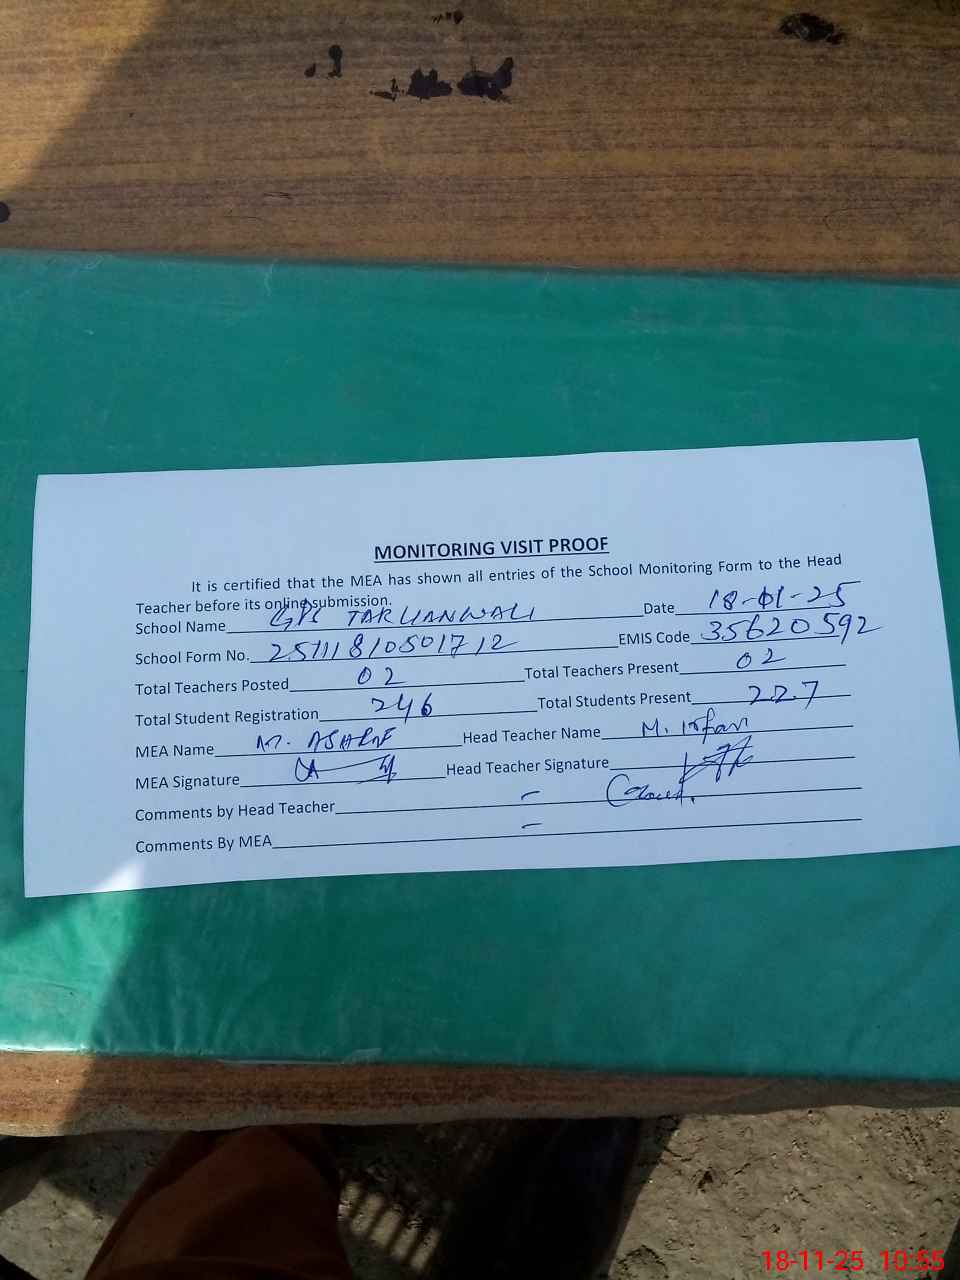 MONITORING VISIT PROOF
It is certified that the MEA has shown all entries of the School Monitoring Form to the Head
Teacher before its online submission.
School Name GPS TARKHANWALI Date 18-11-25
School Form No. 25111810501712 EMIS Code 35620592
Total Teachers Posted 02 Total Teachers Present 02
Total Student Registration 246 Total Students Present 227
MEA Name M. ASHRAF Head Teacher Name M. Irfan
MEA Signature Head Teacher Signature
Comments by Head Teacher -
Comments By MEA -
18-11-25 10:55